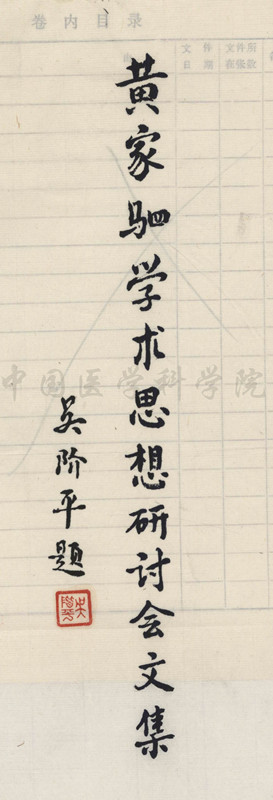 卷内目录
文件日期
文件所在张数
黄家驷学术思想研讨会文集
吴阶平题
中国医学科学院